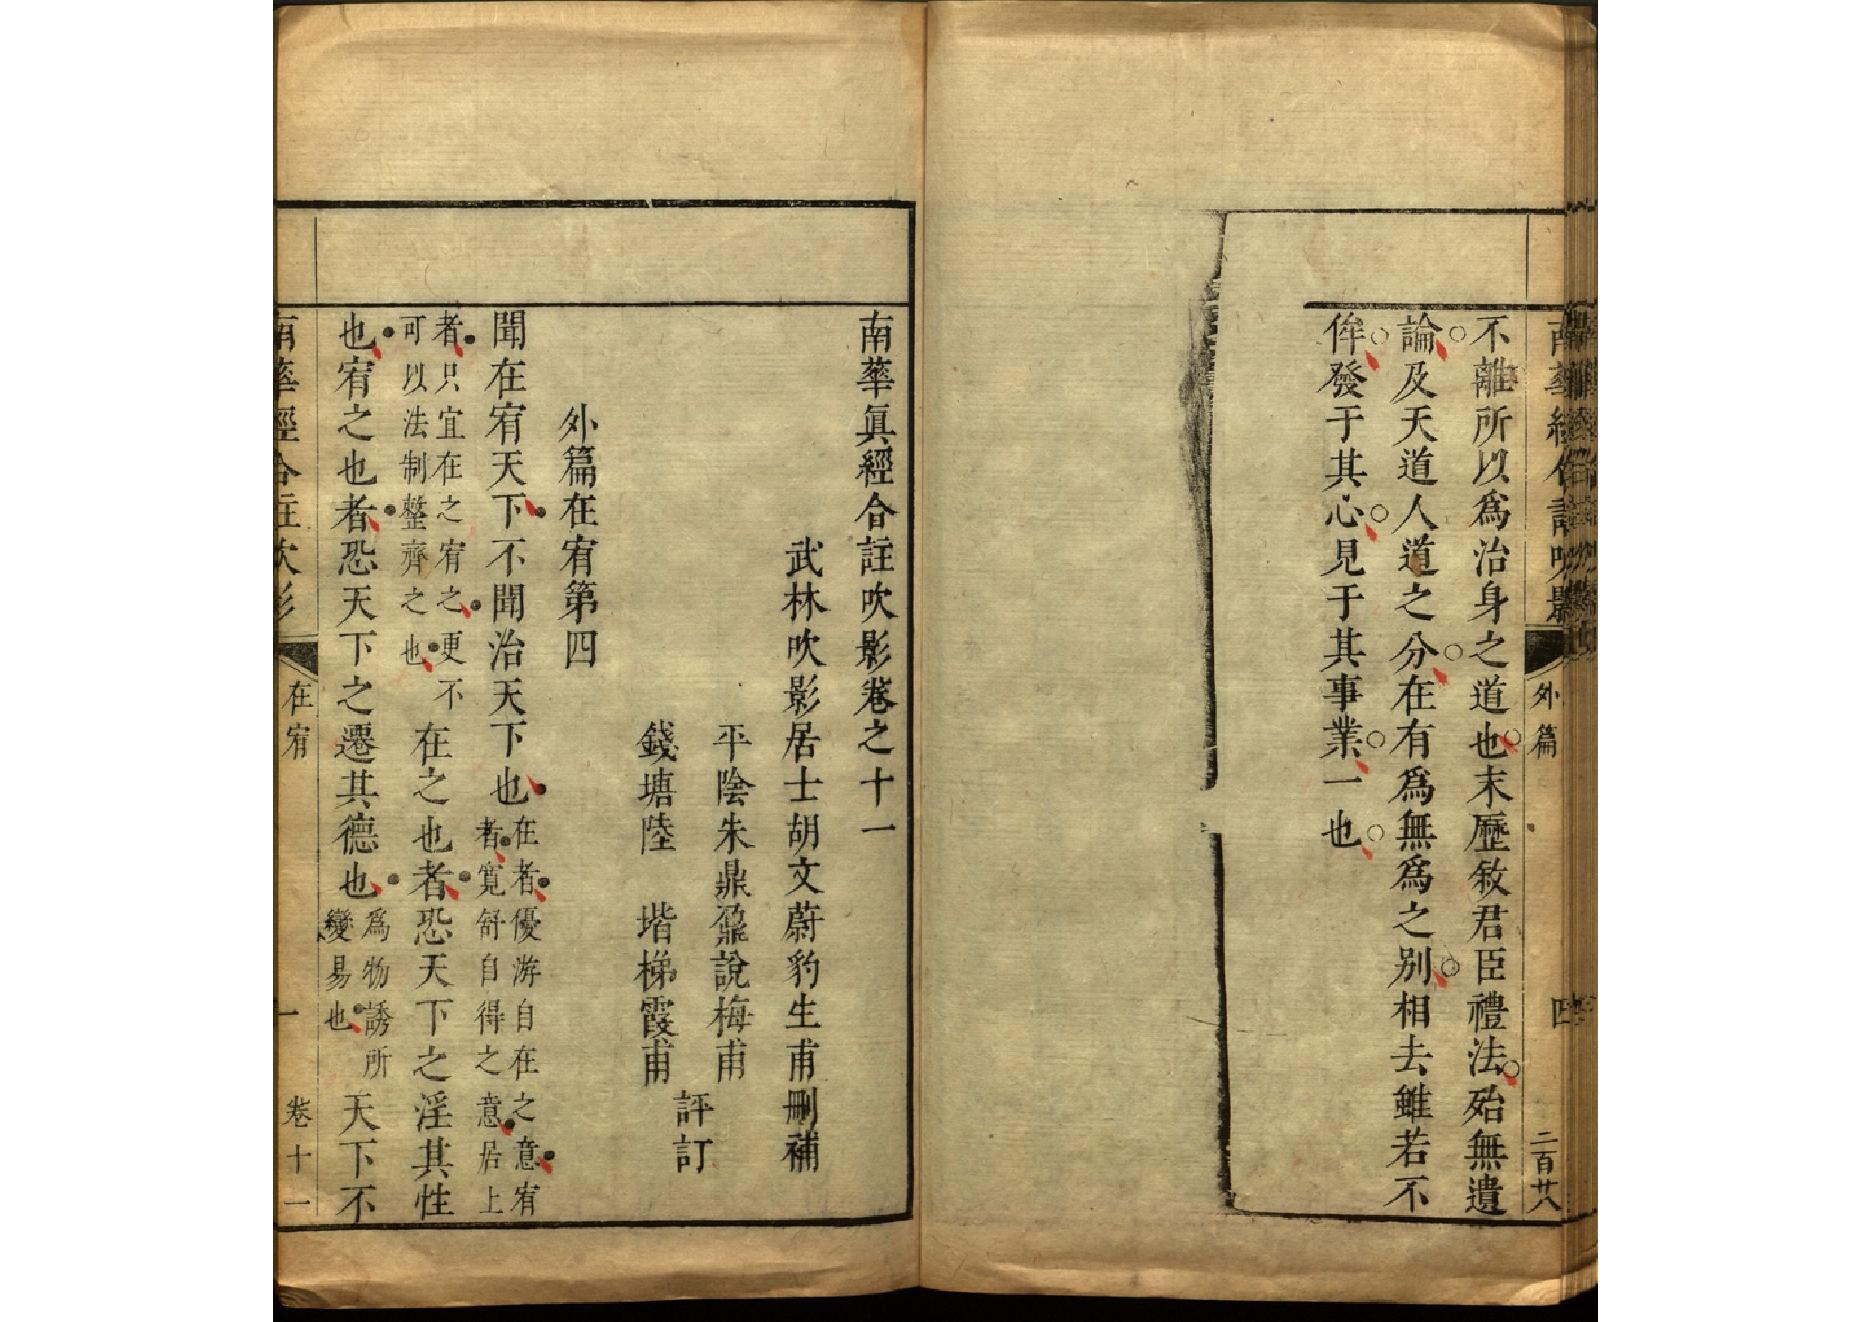 外篇 二百廿八
不離所以爲治身之道也末歷敘君臣禮法殆無遺
論及天道人道之分在有爲無爲之别相去雖若不
侔發于其心見于其事業一也
南華眞經合註吹影卷之十一
武林吹影居士胡文蔚豹生甫刪補
平陰朱鼎鼐說梅甫
評訂
錢塘陸 堦梯霞甫
外篇在宥第四
聞在宥天下不聞治天下也在者優游自在之意宥
者寬舒自得之意居上
者只宜在之宥之更不
可以法制整齊之也在之也者恐天下之淫其性
也宥之也者恐天下之遷其德也爲物誘所
變易也天下不
南華經合註吹影 在宥 一 卷十一